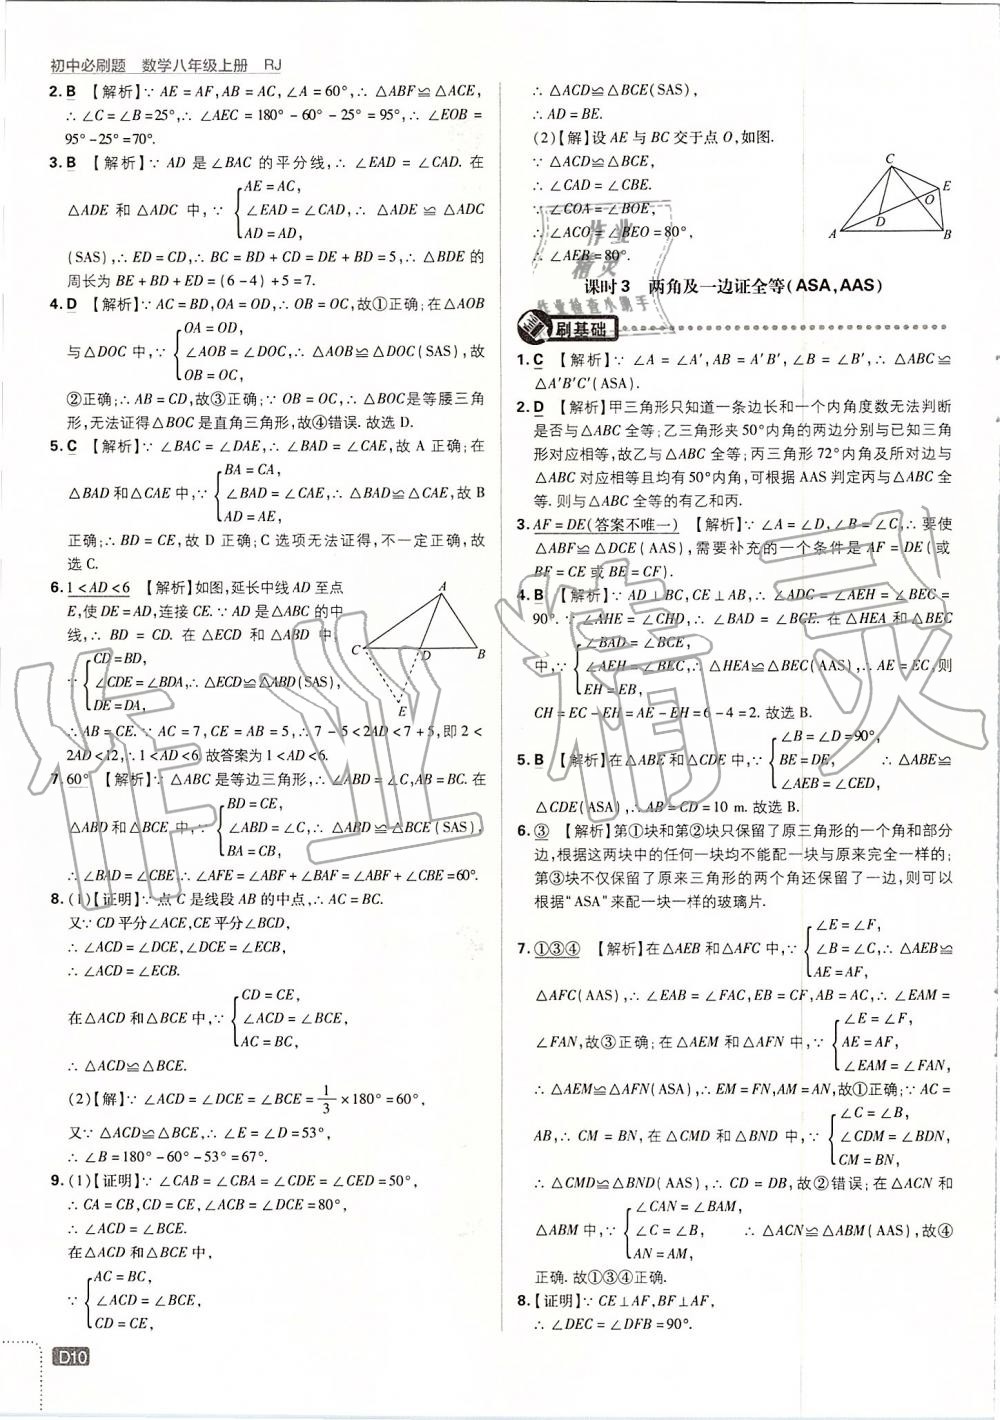 初中必刷题 数学八年级上册 RJ
2. B 【解析】∵ AE = AF, AB = AC, ∠A = 60°, ∴ △ABF≌△ACE,
∴ ∠C = ∠B = 25°, ∴ ∠AEC = 180° - 60° - 25° = 95°, ∴ ∠EOB =
95° - 25° = 70°.
3. B 【解析】∵ AD 是 ∠BAC 的平分线, ∴ ∠EAD = ∠CAD. 在
AE = AC,
△ADE 和 △ADC 中, ∵ ∠EAD = ∠CAD, ∴ △ADE ≌ △ADC
AD = AD,
(SAS), ∴ ED = CD, ∴ BC = BD + CD = DE + BD = 5, ∴ △BDE 的
周长为 BE + BD + ED = (6 - 4) + 5 = 7.
4. D 【解析】∵ AC = BD, OA = OD, ∴ OB = OC, 故①正确; 在△AOB
OA = OD,
与△DOC 中, ∵ ∠AOB = ∠DOC, ∴ △AOB≌△DOC(SAS), 故
OB = OC,
②正确; ∴ AB = CD, 故③正确; ∵ OB = OC, ∴ △BOC是等腰三角
形, 无法证得△BOC 是直角三角形, 故④错误. 故选 D.
5. C 【解析】∵ ∠BAC = ∠DAE, ∴ ∠BAD = ∠CAE, 故 A 正确; 在
BA = CA,
△BAD 和△CAE 中, ∵ ∠BAD = ∠CAE, ∴ △BAD≌△CAE, 故 B
AD = AE,
正确; ∴ BD = CE, 故 D 正确; C 选项无法证得, 不一定正确, 故
选 C.
6. 1 < AD < 6 【解析】如图, 延长中线 AD 至点
E, 使 DE = AD, 连接 CE. ∵ AD 是△ABC 的中
线, ∴ BD = CD. 在 △ECD 和 △ABD 中,
CD = BD,
∵ ∠CDE = ∠BDA, ∴ △ECD≌△ABD(SAS),
DE = DA,
A
C D B
E
∴ AB = CE. ∵ AC = 7, CE = AB = 5, ∴ 7 - 5 < 2AD < 7 + 5, 即 2 <
2AD < 12, ∴ 1 < AD < 6. 故答案为 1 < AD < 6.
7. 60° 【解析】∵ △ABC 是等边三角形, ∴ ∠ABD = ∠C, AB = BC. 在
BD = CE,
△ABD 和△BCE 中, ∵ ∠ABD = ∠C, ∴ △ABD≌△BCE(SAS),
BA = CB,
∴ ∠BAD = ∠CBE, ∴ ∠AFE = ∠ABF + ∠BAF = ∠ABF + ∠CBE = 60°.
8. (1)【证明】∵ 点 C 是线段 AB 的中点, ∴ AC = BC.
又∵ CD 平分∠ACE, CE 平分∠BCD,
∴ ∠ACD = ∠DCE, ∠DCE = ∠ECB,
∴ ∠ACD = ∠ECB.
CD = CE,
在△ACD 和△BCE 中, ∵ ∠ACD = ∠BCE,
AC = BC,
∴ △ACD≌△BCE.
(2)【解】∵ ∠ACD = ∠DCE = ∠BCE = 1/3 × 180° = 60°,
又∵ △ACD≌△BCE, ∴ ∠E = ∠D = 53°,
∴ ∠B = 180° - 60° - 53° = 67°.
9. (1)【证明】∵ ∠CAB = ∠CBA = ∠CDE = ∠CED = 50°,
∴ CA = CB, CD = CE, ∠ACB = ∠DCE = 80°,
∴ ∠ACD = ∠BCE.
在△ACD 和△BCE 中,
AC = BC,
∵ ∠ACD = ∠BCE,
CD = CE,
D10
∴ △ACD≌△BCE(SAS),
∴ AD = BE.
(2)【解】设 AE 与 BC 交于点 O, 如图.
∵ △ACD≌△BCE,
∴ ∠CAD = ∠CBE.
∵ ∠COA = ∠BOE,
∴ ∠ACO = ∠BEO = 80°,
∴ ∠AEB = 80°.
C
E
O
D
A B
课时 3 两角及一边证全等(ASA, AAS)
刷基础
1. C 【解析】∵ ∠A = ∠A′, AB = A′B′, ∠B = ∠B′, ∴ △ABC≌
△A′B′C′(ASA).
2. D 【解析】甲三角形只知道一条边长和一个内角度数无法判断
是否与△ABC 全等; 乙三角形夹 50°内角的两边分别与已知三角
形对应相等, 故乙与△ABC 全等; 丙三角形 72°内角及所对边与
△ABC 对应相等且均有 50°内角, 可根据 AAS 判定丙与△ABC 全
等. 则与△ABC 全等的有乙和丙.
3. AF = DE(答案不唯一) 【解析】∵ ∠A = ∠D, ∠B = ∠C, ∴ 要使
△ABF≌△DCE(AAS), 需要补充的一个条件是 AF = DE(或
BF = CE 或 BE = CF).
4. B 【解析】∵ AD⊥BC, CE⊥AB, ∴ ∠ADC = ∠AEH = ∠BEC =
90°. ∵ ∠AHE = ∠CHD, ∴ ∠BAD = ∠BCE. 在△HEA 和△BEC
∠BAD = ∠BCE,
中, ∵ ∠AEH = ∠BEC, ∴ △HEA≌△BEC(AAS), ∴ AE = EC, 则
EH = EB,
CH = EC - EH = AE - EH = 6 - 4 = 2. 故选 B.
∠B = ∠D = 90°,
5. B 【解析】在△ABE 和△CDE 中, ∵ BE = DE, ∴ △ABE≌
∠AEB = ∠CED,
△CDE(ASA), ∴ AB = CD = 10 m. 故选 B.
6. ③ 【解析】第①块和第②块只保留了原三角形的一个角和部分
边, 根据这两块中的任何一块均不能配一块与原来完全一样的;
第③块不仅保留了原来三角形的两个角还保留了一边, 则可以
根据“ASA”来配一块一样的玻璃片.
∠E = ∠F,
7. ①③④ 【解析】在△AEB 和△AFC 中, ∵ ∠B = ∠C, ∴ △AEB≌
AE = AF,
△AFC(AAS), ∴ ∠EAB = ∠FAC, EB = CF, AB = AC, ∴ ∠EAM =
∠E = ∠F,
∠FAN, 故③正确; 在△AEM 和△AFN 中, ∵ AE = AF,
∠EAM = ∠FAN,
∴ △AEM≌△AFN(ASA), ∴ EM = FN, AM = AN, 故①正确; ∵ AC =
∠C = ∠B,
AB, ∴ CM = BN, 在△CMD 和△BND 中, ∵ ∠CDM = ∠BDN,
CM = BN,
∴ △CMD≌△BND(AAS), ∴ CD = DB, 故②错误; 在△ACN 和
∠CAN = ∠BAM,
△ABM 中, ∵ ∠C = ∠B, ∴ △ACN≌△ABM(AAS), 故④
AN = AM,
正确. 故①③④正确.
8. 【证明】∵ CE⊥AF, BF⊥AF,
∴ ∠DEC = ∠DFB = 90°.
作业精灵
作业检查小助手
作业精灵